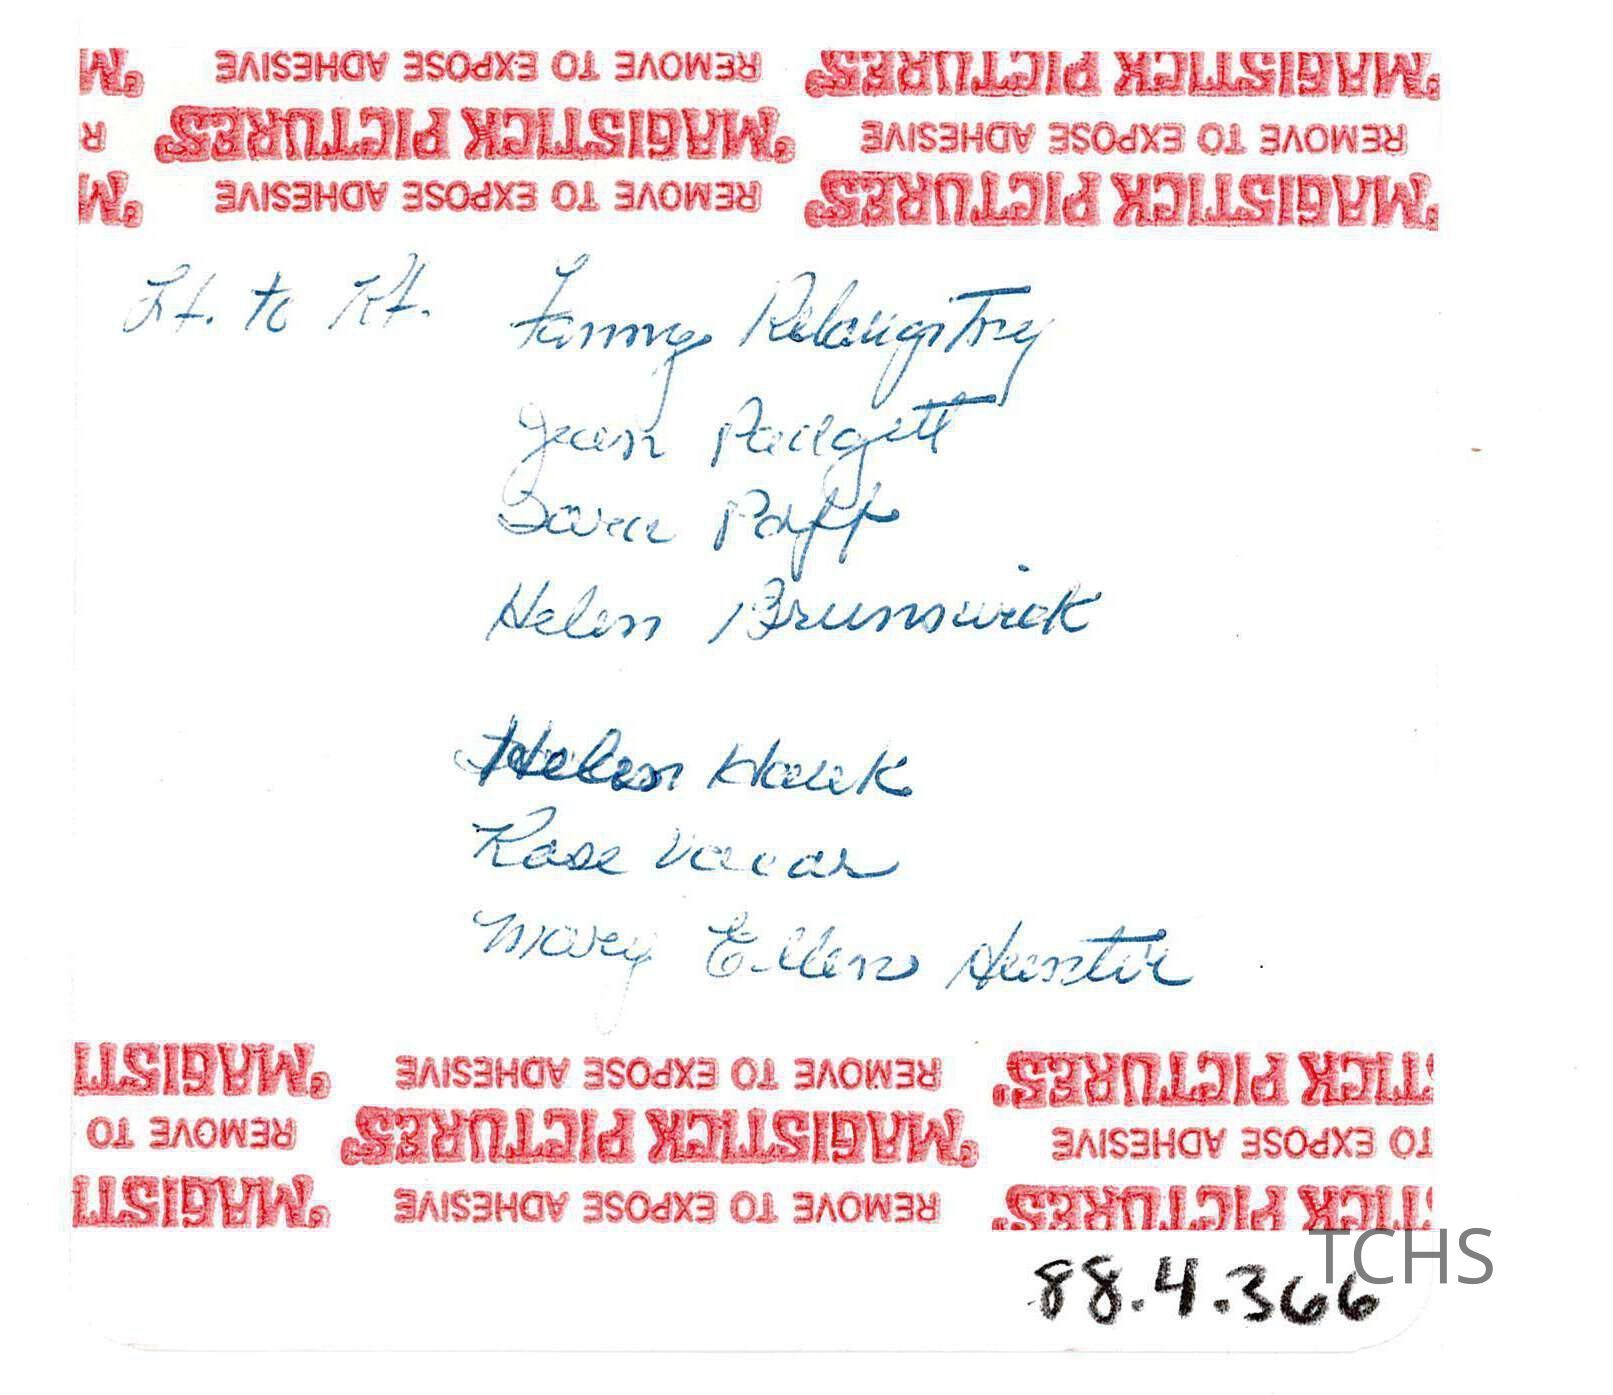 "M REMOVE TO EXPOSE ADHESIVE "MAGISTICK PICTURES"
R "MAGISTICK PICTURES" REMOVE TO EXPOSE ADHESIVE
"M REMOVE TO EXPOSE ADHESIVE "MAGISTICK PICTURES"
Lt. to Rt. Fanny
Jean Padgett
Sara Paff
Helen Brunswick
Helen Hauk
Rose Vacar
Mary Ellen Hunter
"MAGISTI REMOVE TO EXPOSE ADHESIVE TICK PICTURES"
REMOVE TO "MAGISTICK PICTURES" TO EXPOSE ADHESIVE
"MAGISTI REMOVE TO EXPOSE ADHESIVE TICK PICTURES"
TCHS
88.4.366